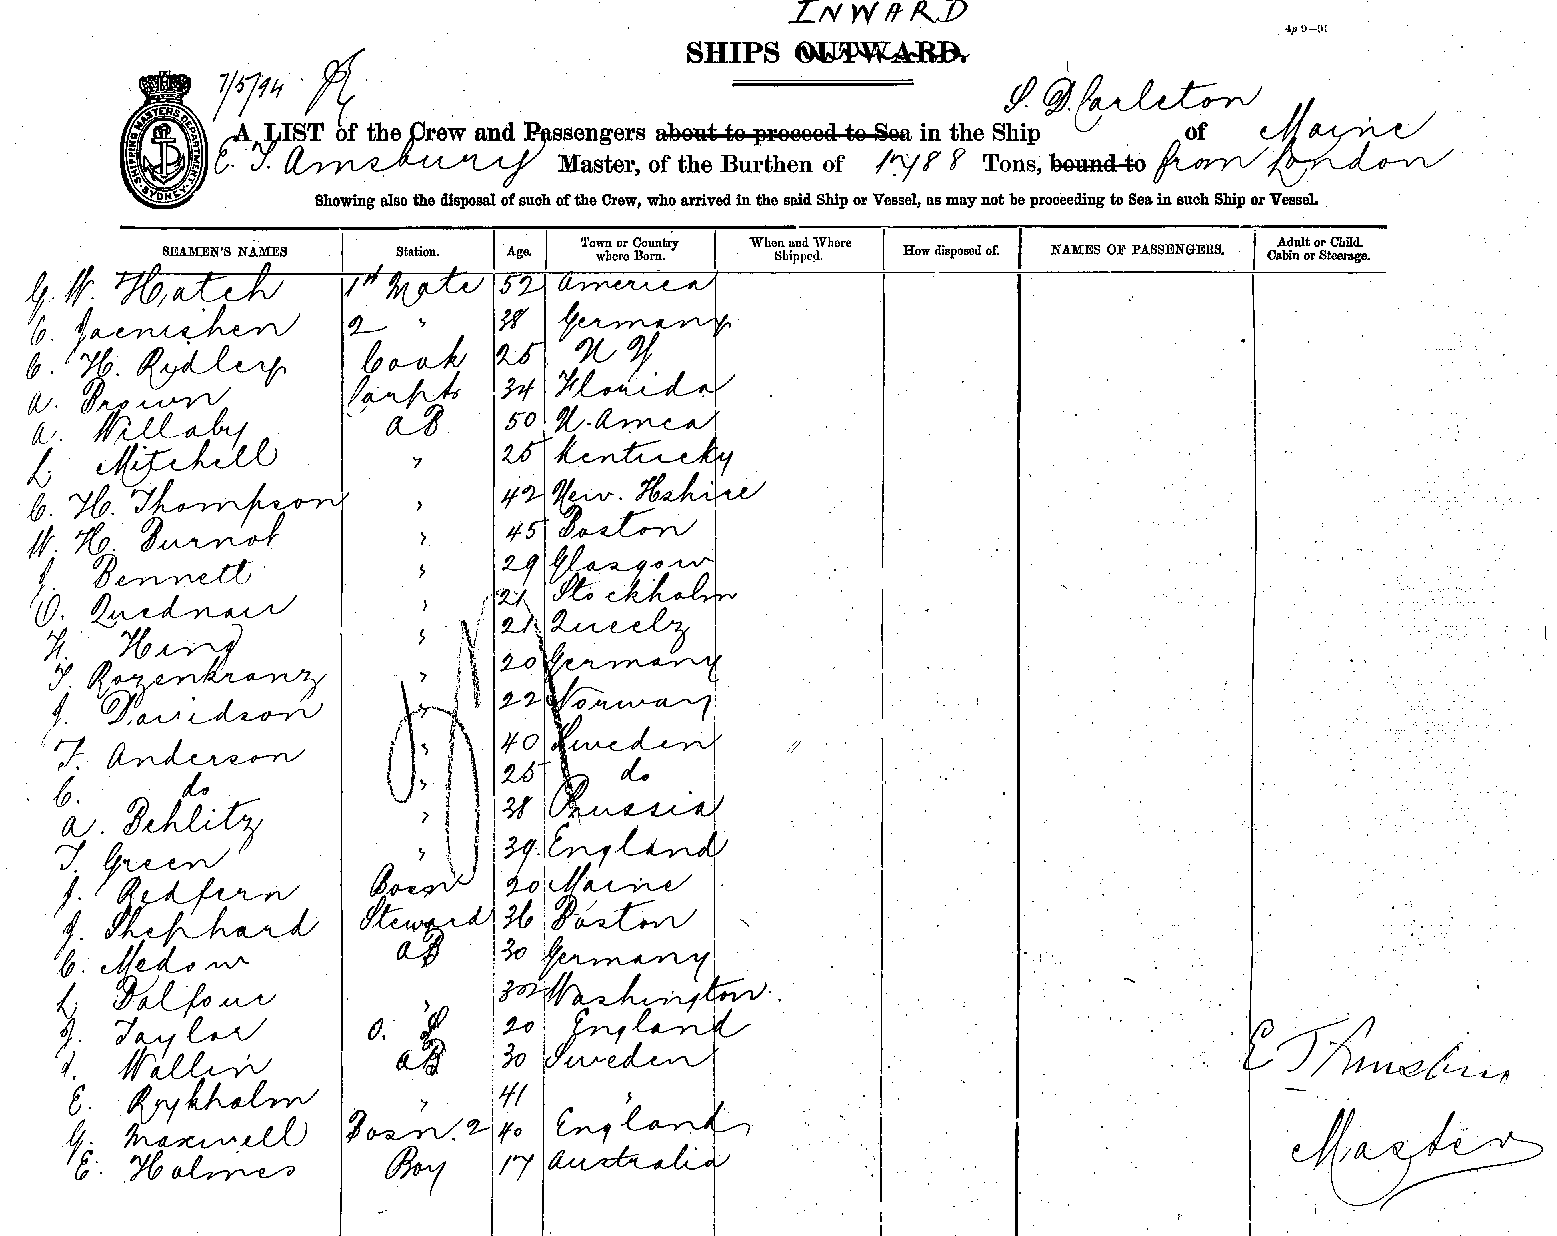 INWARD
4p 9—91
SHIPS OUTWARD.
7/5/94
S. D. Carleton
A LIST of the Crew and Passengers about to proceed to Sea in the Ship of Maine
E. T. Amsbury Master, of the Burthen of 1788 Tons, bound to from London
SHIPPING MASTERS DEPARTMENT. SYDNEY
Showing also the disposal of such of the Crew, who arrived in the said Ship or Vessel, as may not be proceeding to Sea in such Ship or Vessel.
SEAMEN'S NAMES Station. Age. Town or Country where Born. When and Where Shipped. How disposed of. NAMES OF PASSENGERS. Adult or Child. Cabin or Steerage.
G. W. Hatch 1st Mate 52 America
C. Jaenichen 2 " 38 Germany
C. H. Rydley Cook 25 N Y
A. Brown Carptr 34 Florida
A. Willaby AB 50 N. Amca
L. Mitchell " 25 Kentucky
C. H. Thompson " 42 New. Hshire
W. H. Burnot " 45 Boston
J. Bennett " 29 Glasgow
O. Quednau " 21 Stockholm
H. Hing " 21
T. Rozenkranz " 20 Germany
J. Davidson " 22 Norway
F. Anderson " 40 Sweden "
C. do " 25 do
A. Behlitz " 38 Russia
T. Green " 39 England
J. Redfern Bosn 20 Maine
J. Shephard Steward 36 Boston
C. Medow AB 30 Germany
L. Balfour " 32 Washington
J. Taylor O. S 20 England
Wallin AB 30 Sweden
E. Rykholm " 41 "
G. Maxwell Bosn. 2 40 England
E. Holmes Boy 17 Australia
E T Amsbury
Master